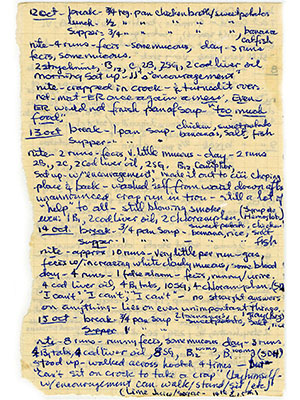 12 Oct - break - 3/4 pan chicken broth/sweet potatoes
lunch - 1/2 " " "
supper - 3/4 " " " banana
catfish
nite - 4 runs - feces - some mucous, day - 3 runs
feces, some mucous.
2 B, 2 cod liver oil
morning sat up - "encouragement"
nite - crapped in crock - & turned it over
not most - ER once again a mess, Even
ER would not finish pan of soup - "too much
food".
13 oct break - 1 pan soup - chicken, sweet potatoes
bananas, salt, fish
Supper - " " "
nite - 2 runs - feces & little mucous - day - 2 runs
2 cod liver oil,
Sat up - w/"encouragement" made it out to chopping
place & back - washed self from waist down after
unannounced crap run in trou - still a lot of
"help" to all - still blowing smoke,
2 cod liver oil, 2 chloramphen
14 oct. break - 3/4 pan soup - sweet potato, chicken,
banana, rice, salt
Supper - 1 " " fish
nite - approx 10 runs - very little per run - gas,
feces w/increasing white cloudy mucous, some blood
day - 4 runs - 1 false alarm - feces, runny/white
4 cod liver oil, 4 B tabs, 10 Sg, 4 chloramphen
"I can't" "I can't", "I can't" - no straight answers
on anything - lies on even unimportant things.
15 oct break - 3/4 pan soup - sweet potato, salt, rice,
Supper - 1 "
nite - 8 runs - runny feces, some mucous day - 3 runs
4 B tabs, 4 cod liver oil, 8 Sg,
Stood up - walked across hooch 4 times - But
"can't sit on crock to take a crap
w/encouragement can walk/stand/sit/etc)